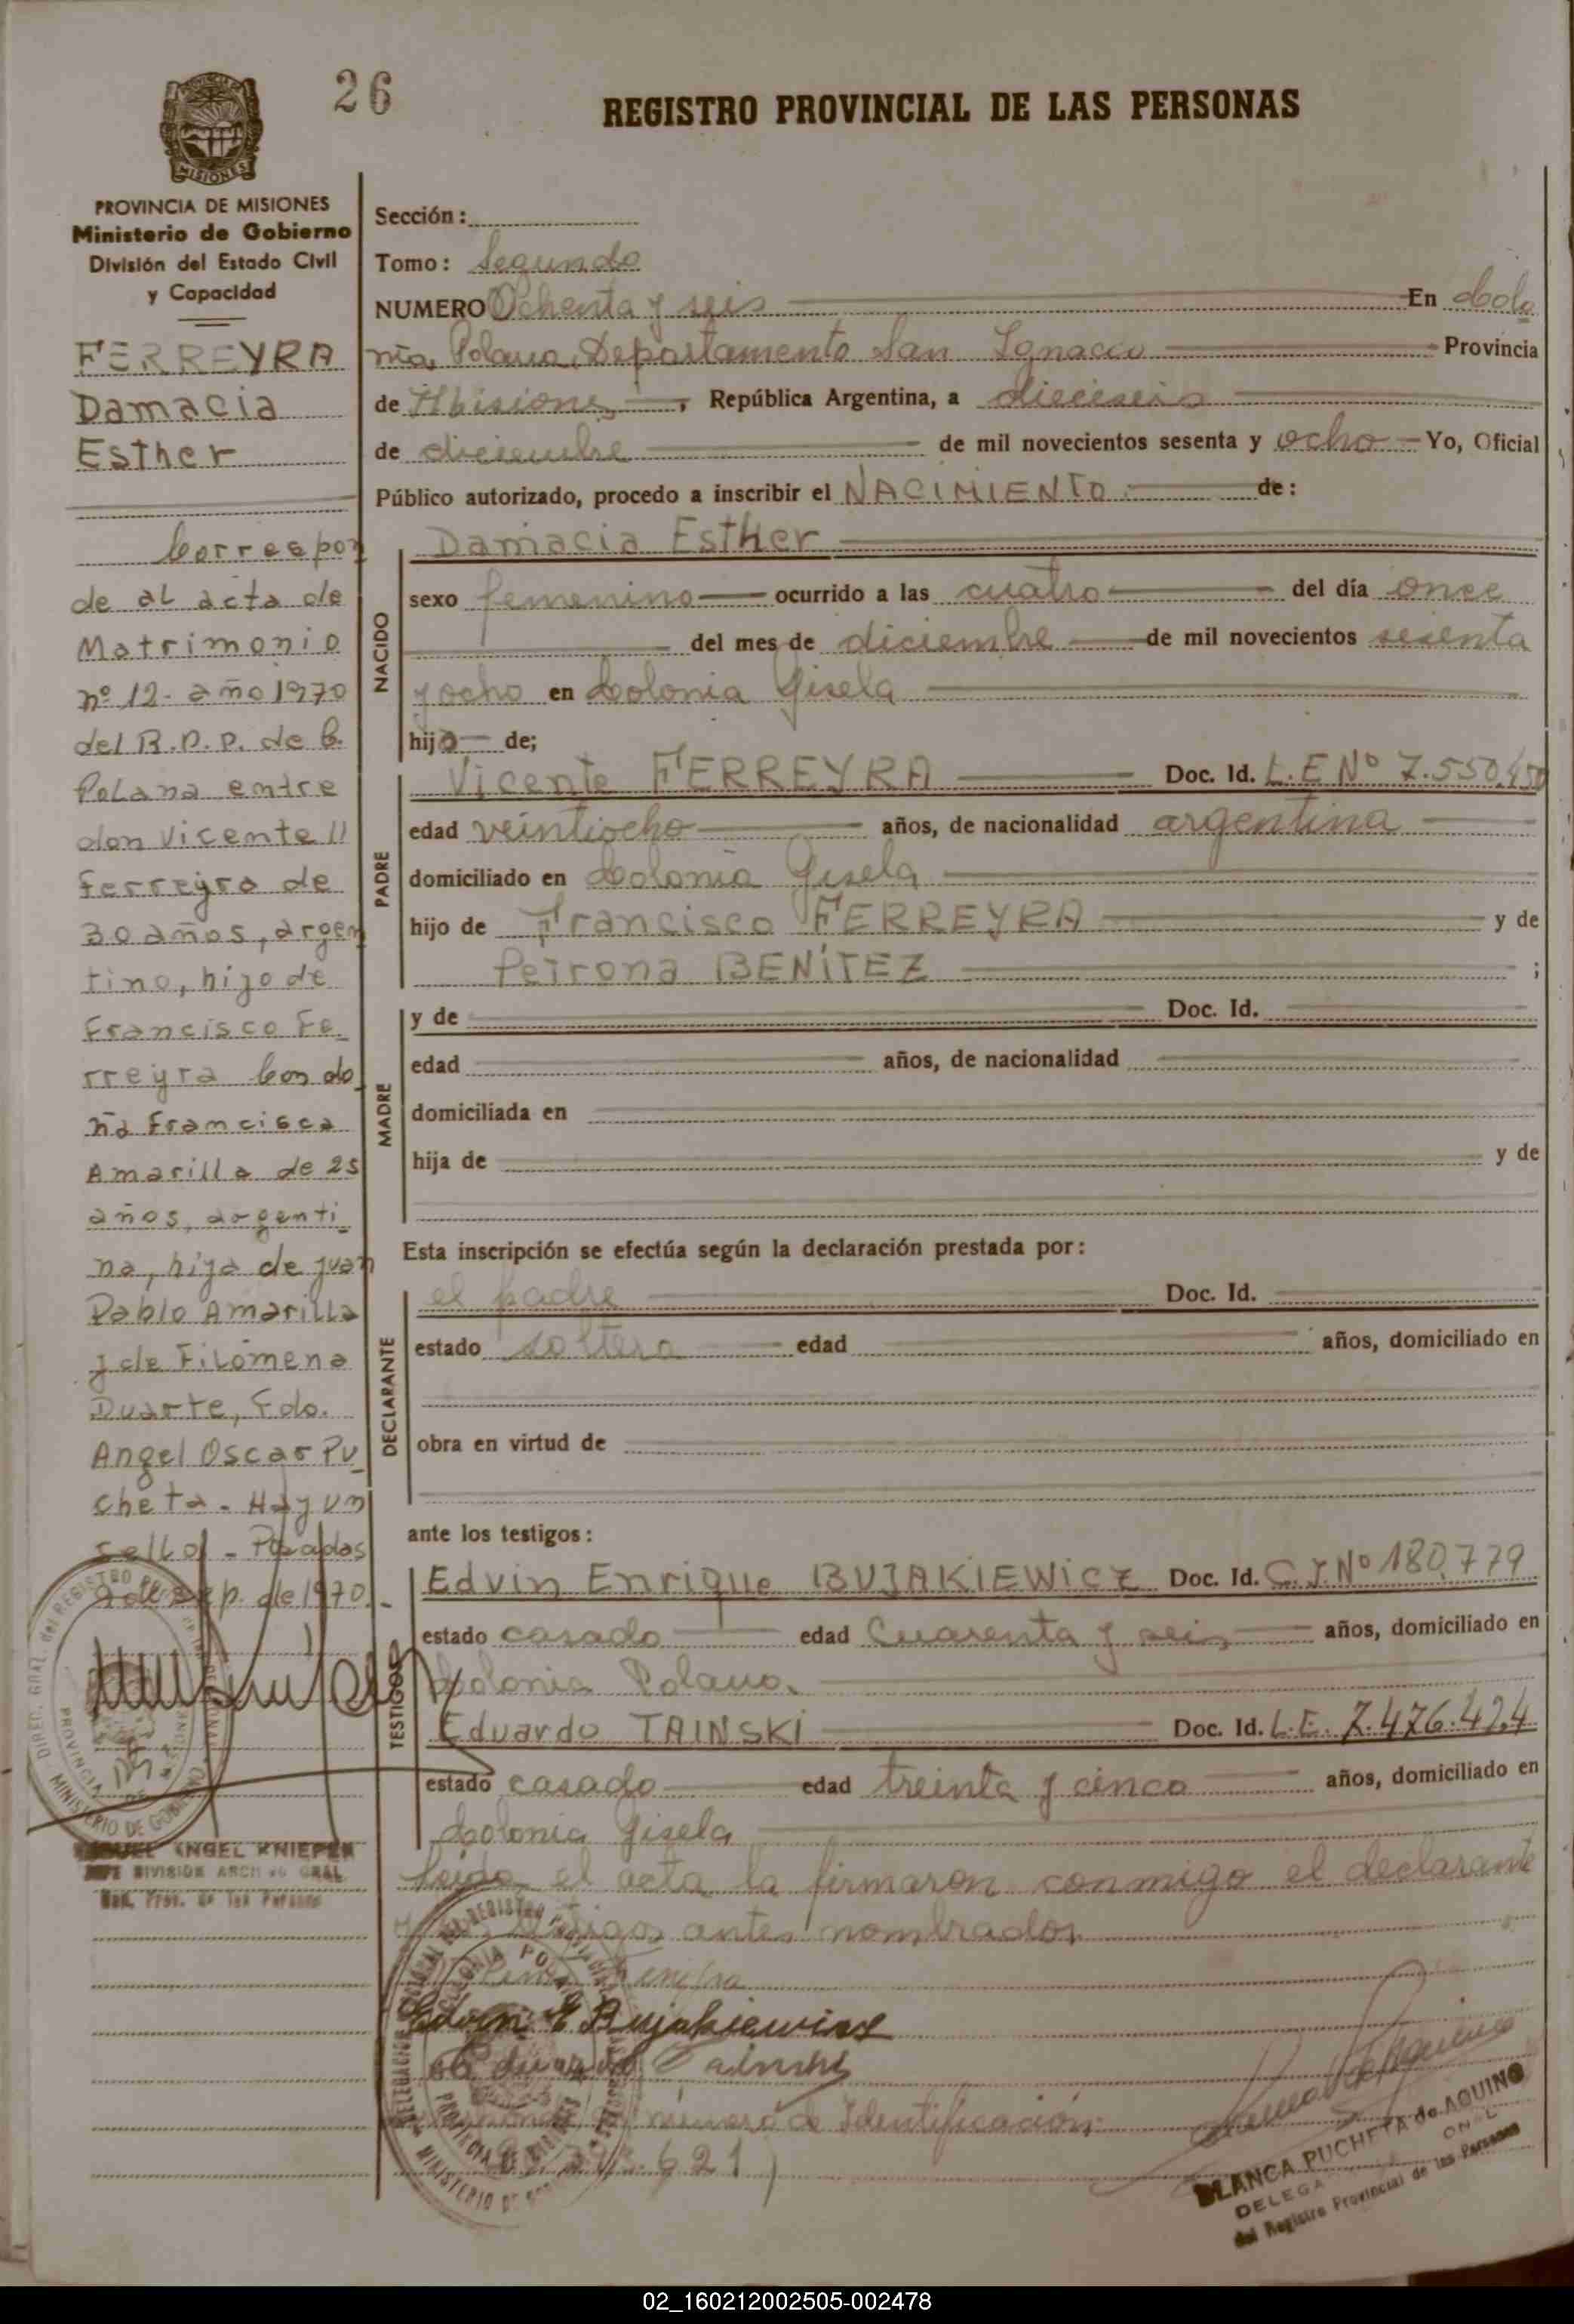 26
REGISTRO PROVINCIAL DE LAS PERSONAS
MISIONES
PROVINCIA DE MISIONES
Ministerio de Gobierno
División del Estado Civil
y Capacidad
FERREYRA
Damacia
Esther
Correspon
de al acta de
Matrimonio
nº 12 - año 1970
del R.P.P. de C.
Polana entre
don Vicente
Ferreyra de
30 años, argen
tino, hijo de
Francisco Fe_
rreyra con do
ña Francisca
Amarilla de 25
años, argenti_
na, hija de Juan
Pablo Amarilla
y de Filomena
Duarte, Fdo.
Angel Oscar Pu_
cheta - Hay un
sello - Posadas
9 de sep. de 1970.-
ANGEL KNIEPER
DIVISION ARCH GRAL
Sección:
Tomo: Segundo
NUMERO Ochenta y seis En Colo
nia Polana, Departamento San Ignacio Provincia
de Misiones, República Argentina, a dieciseis
de diciembre de mil novecientos sesenta y ocho Yo, Oficial
Público autorizado, procedo a inscribir el NACIMIENTO de:
NACIDO
Damacia Esther
sexo femenino ocurrido a las cuatro del día once
del mes de diciembre de mil novecientos sesenta
y ocho en Colonia Gisela
hija de;
PADRE
Vicente FERREYRA Doc. Id. L.E Nº 7.550.450
edad veintiocho años, de nacionalidad argentina
domiciliado en Colonia Gisela
hijo de Francisco FERREYRA y de
Petrona BENÍTEZ ;
MADRE
y de Doc. Id.
edad años, de nacionalidad
domiciliada en
hija de y de
Esta inscripción se efectúa según la declaración prestada por:
DECLARANTE
el padre Doc. Id.
estado soltero edad años, domiciliado en
obra en virtud de
ante los testigos:
TESTIGOS
Edvin Enrique BUJAKIEWICZ Doc. Id. C.I. Nº 180.779
estado casado edad Cuarenta y seis años, domiciliado en
Colonia Polana.
Eduardo TAINSKI Doc. Id. L.E. 7.476.424
estado casado edad treinta y cinco años, domiciliado en
Colonia Gisela
Leída el acta la firmaron conmigo el declarante
testigos antes nombrados.
Edvin E Bujakiewicz
Eduardo Tainski
número de Identificación:
621)
BLANCA PUCHETA de AQUINO
DELEGA ONAL
del Registro Provincial de las Personas
02_160212002505-002478